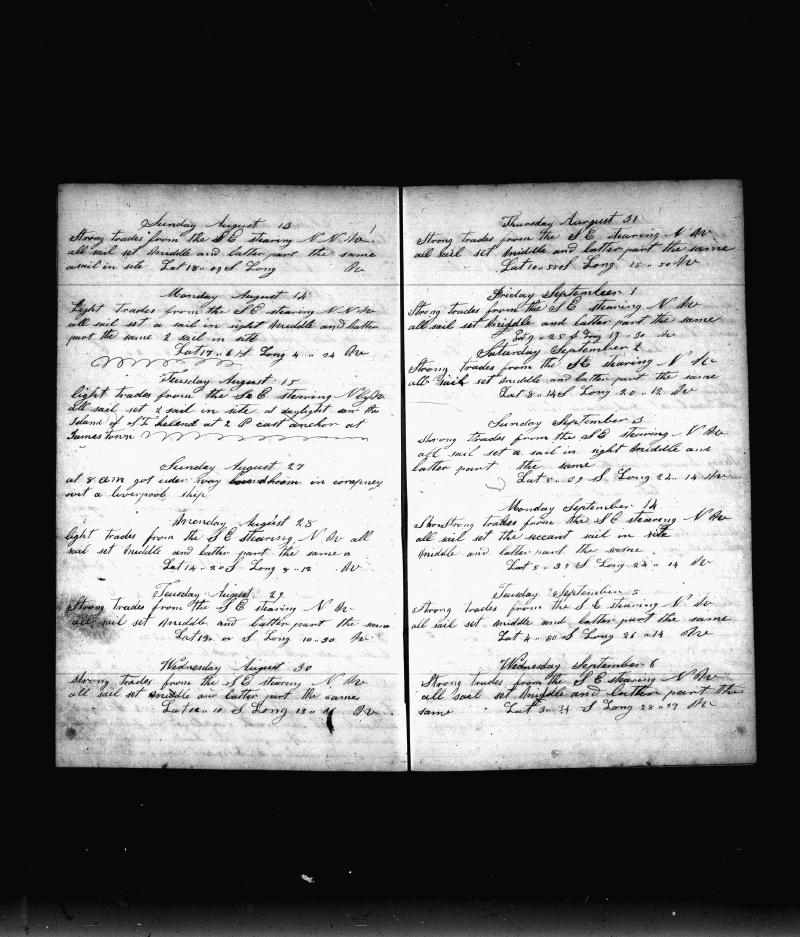 Sunday August 13
Strong trades from the S E stearing N N W
all sail set middle and latter part the same
a sail in site Lat 18 " 09 S Long W
Monday August 14
Light trades from the S E stearing N N W
all sail set a sail in sight middle and latter
part the same 2 sail in site
Lat 17 " 6 S Long 4 " 24 W
Tuesday August 15
light trades from the S E stearing N by W
all sail set 2 sail in site at daylight saw the
Island of St Helena at 2 P cast anchor at
Jamestown
Sunday August 27
at 8 am got under way bound hoom in company
wit a liverpool ship
Monday August 28
light trades from the S E stearing N W all
sail set middle and latter part the same
Lat 14 " 20 S Long 8 " 12 W
Tuesday August 29
Strong trades from the S E stearing N W
all sail set middle and latter part the same
Lat 13 " S Long 10 " 30 W
Wednesday August 30
Strong trades from the S E stearing N W
all sail set middle and latter part the same
Lat 12 " 10 S Long 13 " W
Thursday August 31
Strong trades from the S E stearing N W
all sail set middle and latter part the same
Lat 10 " S Long 15 " 50 W
Friday September 1
Strong trades from the S E stearing N W
all sail set middle and latter part the same
Lat 9 " 25 S Long 19 " 30 W
Saturday September 2
Strong trades from the S E stearing N W
all sail set middle and latter part the same
Lat 8 " 14 S Long 20 " 12 W
Sunday September 3
Strong trades from the S E stearing N W
all sail set a sail in sight middle and
latter part the same
Lat " 09 S Long 22 " 14 W
Monday September 14
Strong trades from the S E stearing N W
all sail set the seccant sail in site
middle and latter part the same
Lat 5 " 39 S Long 24 " 14 W
Tuesday September 5
Strong trades from the S E stearing N W
all sail set middle and latter part the same
Lat 4 " 50 S Long 26 " 14 W
Wednesday September 6
Strong trades from the S E stearing N W
all sail set middle and latter part the
same Lat 3 " 34 S Long 28 " 27 W